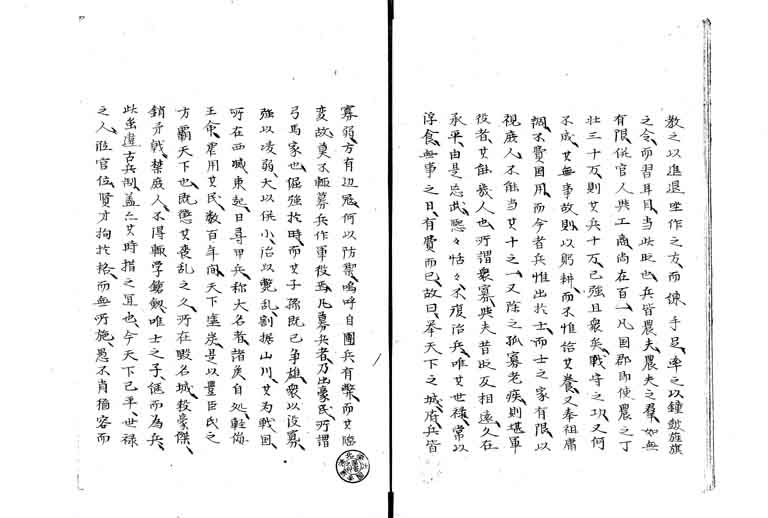 教之以進退坐作之方、而使手足、率之以鐘鼓旌旗
之令、而習耳目、当此时也、兵皆農夫、農夫之羣、如無
有限、從官人與工商、尚在百一、凡国郡即使農之丁
壮三十万、則其兵十万、已強且衆矣、戰守之功又何
不成、其無事故則以躬耕、而不惟給其養、又奉祖庸
調、不費国用、而今者兵惟出於士、而士之家有限、以
視庶人、不能当其十之一、又除之孤寡老疾、則堪軍
役者、其能幾人也、所謂衆寡與夫昔时反相遠、久在
承平、由是忘武、熙々恬々、不復治兵、唯其世禄、常以
浮食、無事之日、有費而已、故曰、挙天下之城府、兵皆
寡弱、方有辺寇、何以防禦、嗚呼自團兵有弊、而其臨
変故、莫不輙募兵作軍役焉、凡募兵者、乃出豪民、所謂
弓馬家也、倔強於時、而其子孫既已争雄、衆以役寡、
強以凌弱、大以併小、治以斃乱、割拠山川、其为戰国、
所在西滅東起、日尋甲兵、称大名者、諸矦自処、雖尚
王命、罷用其民、数百年间、天下塗炭、是以豊臣氏之
方覇天下也、既懲其喪乱之久、所在毀名城、殺豪傑、
銷矛戟、禁庶人、不得輙学鎗劔、唯士之子、伍而為兵、
此虽違古兵制、蓋亦其時措之宜也、今天下已平、世禄
之人、涖官位、賢才拘於格、而無所施、愚不肖獲容而